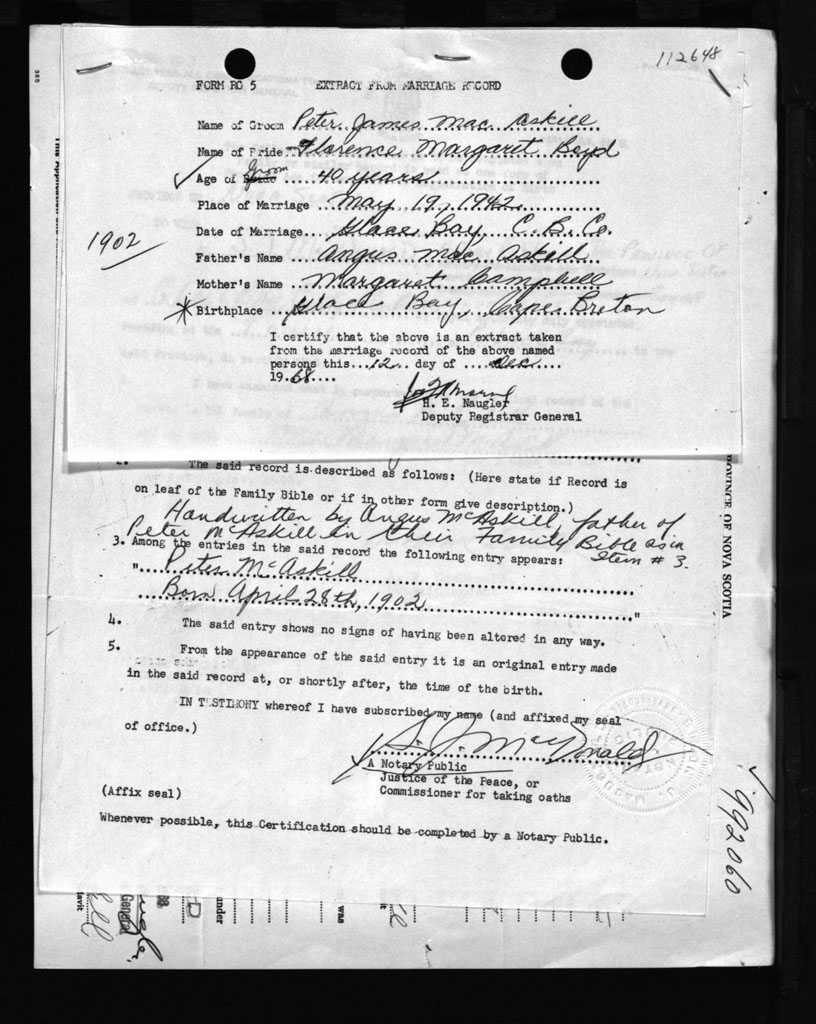 112648
FORM RG 5 EXTRACT FROM MARRIAGE RECORD
Name of Groom Peter James Mac Askill
Name of Bride Florence Margaret Boyd
Groom
Age of Bride 40 years
Place of Marriage May 19, 1942
Date of Marriage Glace Bay C. B. Co.
1902
Father's Name Angus Mac Askill
Mother's Name Margaret Campbell
Birthplace Glace Bay Cape Breton
I certify that the above is an extract taken
from the marriage record of the above named
persons this 12 day of Dec
19 68
H. E. Naugler
Deputy Registrar General
The said record is described as follows: (Here state if Record is
on leaf of the Family Bible or if in other form give description.)
Handwritten by Angus McAskill, father of
Peter McAskill in their Family Bible as in
Item # 3.
3. Among the entries in the said record the following entry appears:
" Peter McAskill
Born April 28th, 1902 "
4. The said entry shows no signs of having been altered in any way.
5. From the appearance of the said entry it is an original entry made
in the said record at, or shortly after, the time of the birth.
IN TESTIMONY whereof I have subscribed my name (and affixed my seal
of office.)
MacDonald
A Notary Public
Justice of the Peace, or
Commissioner for taking oaths
(Affix seal)
Whenever possible, this Certification should be completed by a Notary Public.
PROVINCE OF NOVA SCOTIA
992060
was
under
General